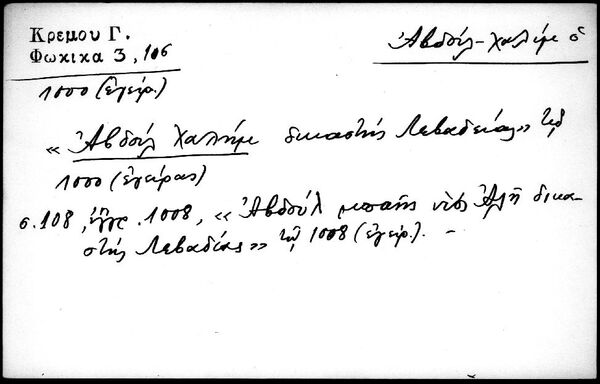 Κρεμου Γ.
Φωκικα 3, 106
Ἀβδούλ-χαλίμ ὁ
1000 (ἐγείρ.)
«Ἀβδούλ Χαλήμ δικαστής Λεβαδείας» τῷ
1000 (ἐγείρας)
σ. 108, ἔγγρ. 1008, «Ἀβδούλ υἱός Ἀλῆ δικα-
στής Λεβαδίας» τῷ 1008 (ἐγείρ.). –